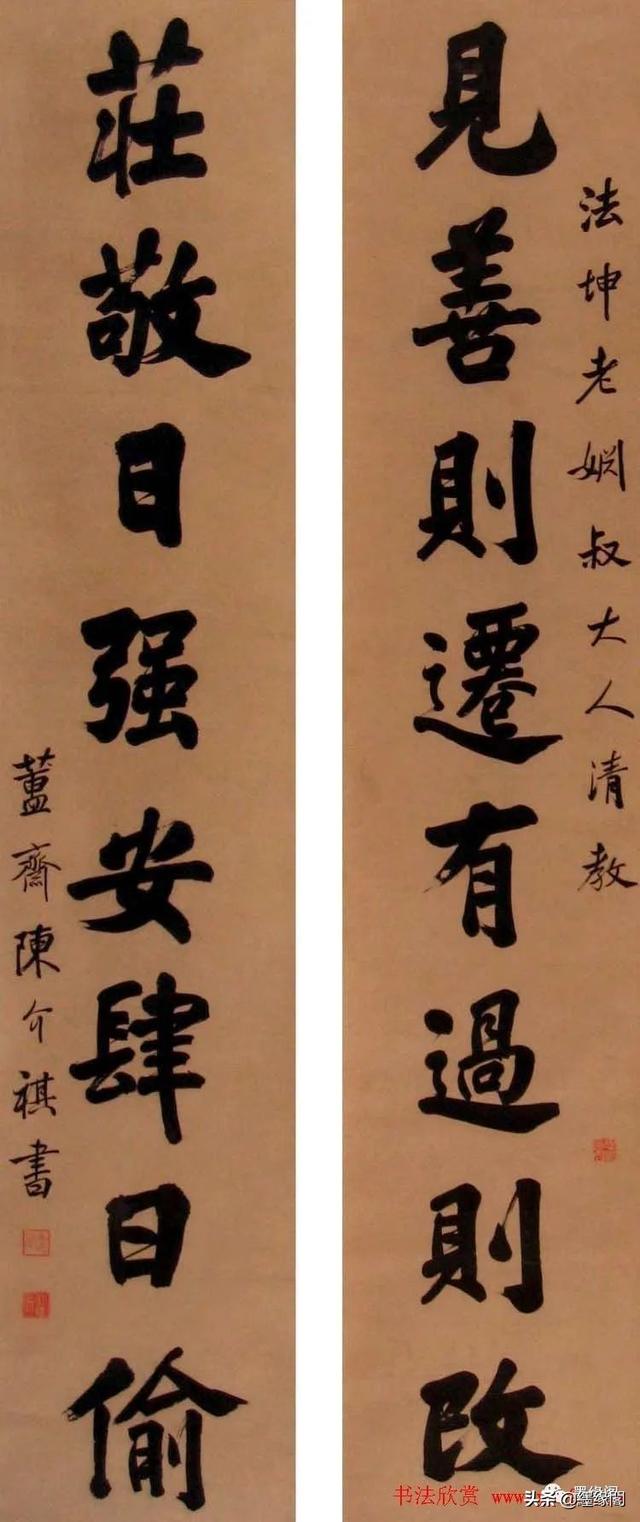 法坤老婣叔大人清教
見善則遷有過則改
莊敬日强安肆日偷
簠齋陳介祺書
书法欣赏 www.
墨缘阁
头条 @墨缘阁